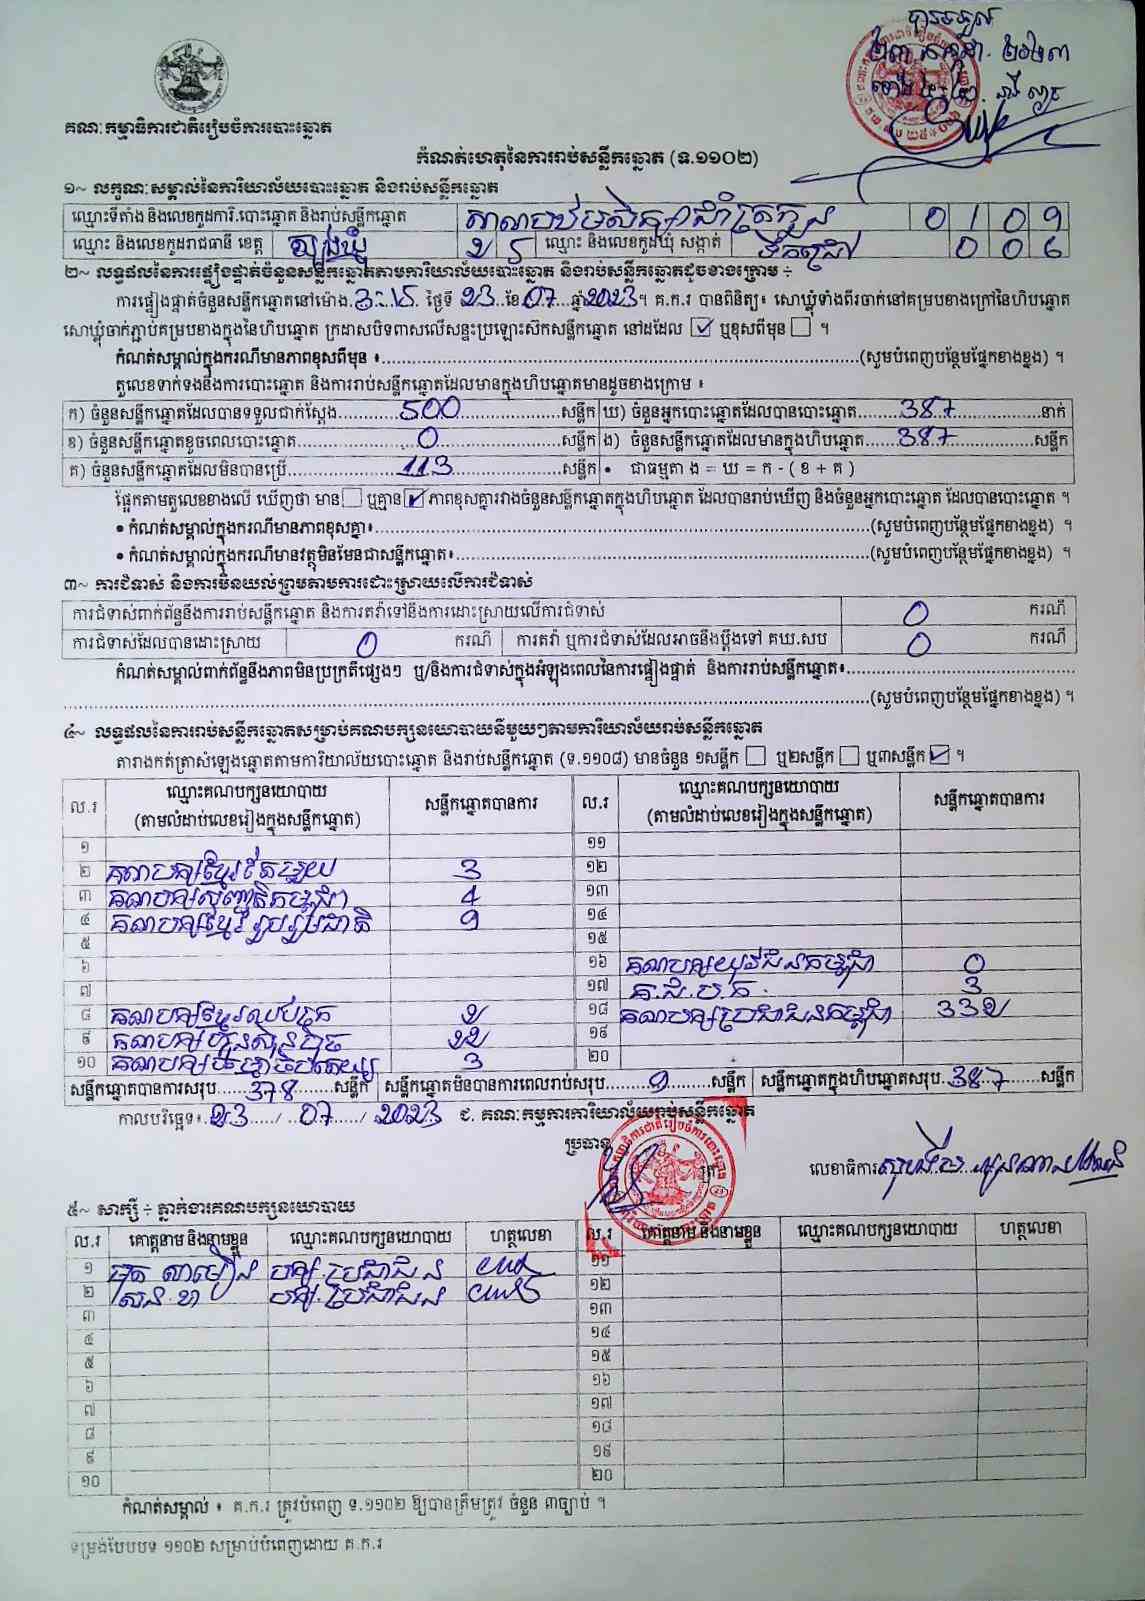 បានទទួល
គណៈកម្មាធិការជាតិរៀបចំការបោះឆ្នោត
កំណត់ហេតុនៃការរាប់សន្លឹកឆ្នោត (ទ.១១០២)
១~ លក្ខណៈសម្គាល់នៃការិយាល័យបោះឆ្នោត និងរាប់សន្លឹកឆ្នោត
ឈ្មោះទីតាំង និងលេខកូដការិ.បោះឆ្នោត និងរាប់សន្លឹកឆ្នោត 0 1 0 9
ឈ្មោះ និងលេខកូដរាជធានី ខេត្ត ត្បូងឃ្មុំ ២ 5 ឈ្មោះ និងលេខកូដឃុំ សង្កាត់ ទឹកជ្រៅ 0 0 6
២~ លទ្ធផលនៃការផ្ទៀងផ្ទាត់ចំនួនសន្លឹកឆ្នោតតាមការិយាល័យបោះឆ្នោត និងរាប់សន្លឹកឆ្នោតដូចខាងក្រោម ÷
ការផ្ទៀងផ្ទាត់ចំនួនសន្លឹកឆ្នោតនៅម៉ោង 3:15 ថ្ងៃទី 23 ខែ 07 ឆ្នាំ 2023។ គ.ក.រ បានពិនិត្យ៖ សោឃ្លុំទាំងពីរចាក់នៅគម្របខាងក្រៅនៃហិបឆ្នោត
សោឃ្លុំចាក់ភ្ជាប់គម្របខាងក្នុងនៃហិបឆ្នោត ក្រដាសបិទពាសលើសន្ទះប្រឡោះស៊កសន្លឹកឆ្នោត នៅដដែល ✓ ឬខុសពីមុន ។
កំណត់សម្គាល់ក្នុងករណីមានភាពខុសពីមុន ៖ (សូមបំពេញបន្ថែមផ្នែកខាងខ្នង) ។
តួលេខទាក់ទងនឹងការបោះឆ្នោត និងការរាប់សន្លឹកឆ្នោតដែលមានក្នុងហិបឆ្នោតមានដូចខាងក្រោម ៖
ក) ចំនួនសន្លឹកឆ្នោតដែលបានទទួលជាក់ស្តែង 500 សន្លឹក ឃ) ចំនួនអ្នកបោះឆ្នោតដែលបានបោះឆ្នោត 387 នាក់
ខ) ចំនួនសន្លឹកឆ្នោតខូចពេលបោះឆ្នោត 0 សន្លឹក ង) ចំនួនសន្លឹកឆ្នោតដែលមានក្នុងហិបឆ្នោត 387 សន្លឹក
គ) ចំនួនសន្លឹកឆ្នោតដែលមិនបានប្រើ 113 សន្លឹក • ជាធម្មតា ង = ឃ = ក - ( ខ + គ )
ផ្អែកតាមតួលេខខាងលើ ឃើញថា មាន ឬគ្មាន ✓ ភាពខុសគ្នារវាងចំនួនសន្លឹកឆ្នោតក្នុងហិបឆ្នោត ដែលបានរាប់ឃើញ និងចំនួនអ្នកបោះឆ្នោត ដែលបានបោះឆ្នោត ។
• កំណត់សម្គាល់ក្នុងករណីមានភាពខុសគ្នា៖ (សូមបំពេញបន្ថែមផ្នែកខាងខ្នង) ។
• កំណត់សម្គាល់ក្នុងករណីមានវត្ថុមិនមែនជាសន្លឹកឆ្នោត៖ (សូមបំពេញបន្ថែមផ្នែកខាងខ្នង) ។
៣~ ការជំទាស់ និងការមិនយល់ព្រមតាមការដោះស្រាយលើការជំទាស់
ការជំទាស់ពាក់ព័ន្ធនឹងការរាប់សន្លឹកឆ្នោត និងការតវ៉ាទៅនឹងការដោះស្រាយលើការជំទាស់ 0 ករណី
ការជំទាស់ដែលបានដោះស្រាយ 0 ករណី ការតវ៉ា ឬការជំទាស់ដែលអាចនឹងប្តឹងទៅ គឃ.សប 0 ករណី
កំណត់សម្គាល់ពាក់ព័ន្ធនឹងភាពមិនប្រក្រតីផ្សេងៗ ឬ/និងការជំទាស់ក្នុងអំឡុងពេលនៃការផ្ទៀងផ្ទាត់ និងការរាប់សន្លឹកឆ្នោត៖
(សូមបំពេញបន្ថែមផ្នែកខាងខ្នង) ។
៤~ លទ្ធផលនៃការរាប់សន្លឹកឆ្នោតសម្រាប់គណបក្សនយោបាយនីមួយៗតាមការិយាល័យរាប់សន្លឹកឆ្នោត
តារាងកត់ត្រាសំឡេងឆ្នោតតាមការិយាល័យបោះឆ្នោត និងរាប់សន្លឹកឆ្នោត (ទ.១១០៨) មានចំនួន ១សន្លឹក ឬ២សន្លឹក ឬ៣សន្លឹក ✓ ។
ល.រ ឈ្មោះគណបក្សនយោបាយ (តាមលំដាប់លេខរៀងក្នុងសន្លឹកឆ្នោត) សន្លឹកឆ្នោតបានការ ល.រ ឈ្មោះគណបក្សនយោបាយ (តាមលំដាប់លេខរៀងក្នុងសន្លឹកឆ្នោត) សន្លឹកឆ្នោតបានការ
១ ១១
២ គណបក្សខ្មែរតែមួយ 3 ១២
៣ គណបក្សសញ្ជាតិកម្ពុជា 4 ១៣
៤ គណបក្សខ្មែររួបរួមជាតិ 9 ១៤
៥ ១៥
៦ ១៦ គណបក្សយុវជនកម្ពុជា 0
៧ ១៧ គ.ជ.ប.ក. 3
៨ ២ ១៨ គណបក្សប្រជាជនកម្ពុជា 33២
៩ គណបក្សហ្វ៊ុនស៊ិនប៉ិច ២២ ១៩
១០ 3 ២០
សន្លឹកឆ្នោតបានការសរុប 378 សន្លឹក សន្លឹកឆ្នោតមិនបានការពេលរាប់សរុប 9 សន្លឹក សន្លឹកឆ្នោតក្នុងហិបឆ្នោតសរុប 387 សន្លឹក
កាលបរិច្ឆេទ៖ ២3 / 07 / 2023 ជ. គណៈកម្មការការិយាល័យរាប់សន្លឹកឆ្នោត
ប្រធាន
លេខាធិការ
៥~ សាក្សី ÷ ភ្នាក់ងារគណបក្សនយោបាយ
ល.រ គោត្តនាម និងនាមខ្លួន ឈ្មោះគណបក្សនយោបាយ ហត្ថលេខា ល.រ គោត្តនាម និងនាមខ្លួន ឈ្មោះគណបក្សនយោបាយ ហត្ថលេខា
១ បក្ស ប្រជាជន ១១
២ បក្ស ប្រជាជន ១២
៣ ១៣
៤ ១៤
៥ ១៥
៦ ១៦
៧ ១៧
៨ ១៨
៩ ១៩
១០ ២០
កំណត់សម្គាល់ ៖ គ.ក.រ ត្រូវបំពេញ ទ.១១០២ ឱ្យបានត្រឹមត្រូវ ចំនួន ៣ច្បាប់ ។
ទម្រង់បែបបទ ១១០២ សម្រាប់បំពេញដោយ គ.ក.រ